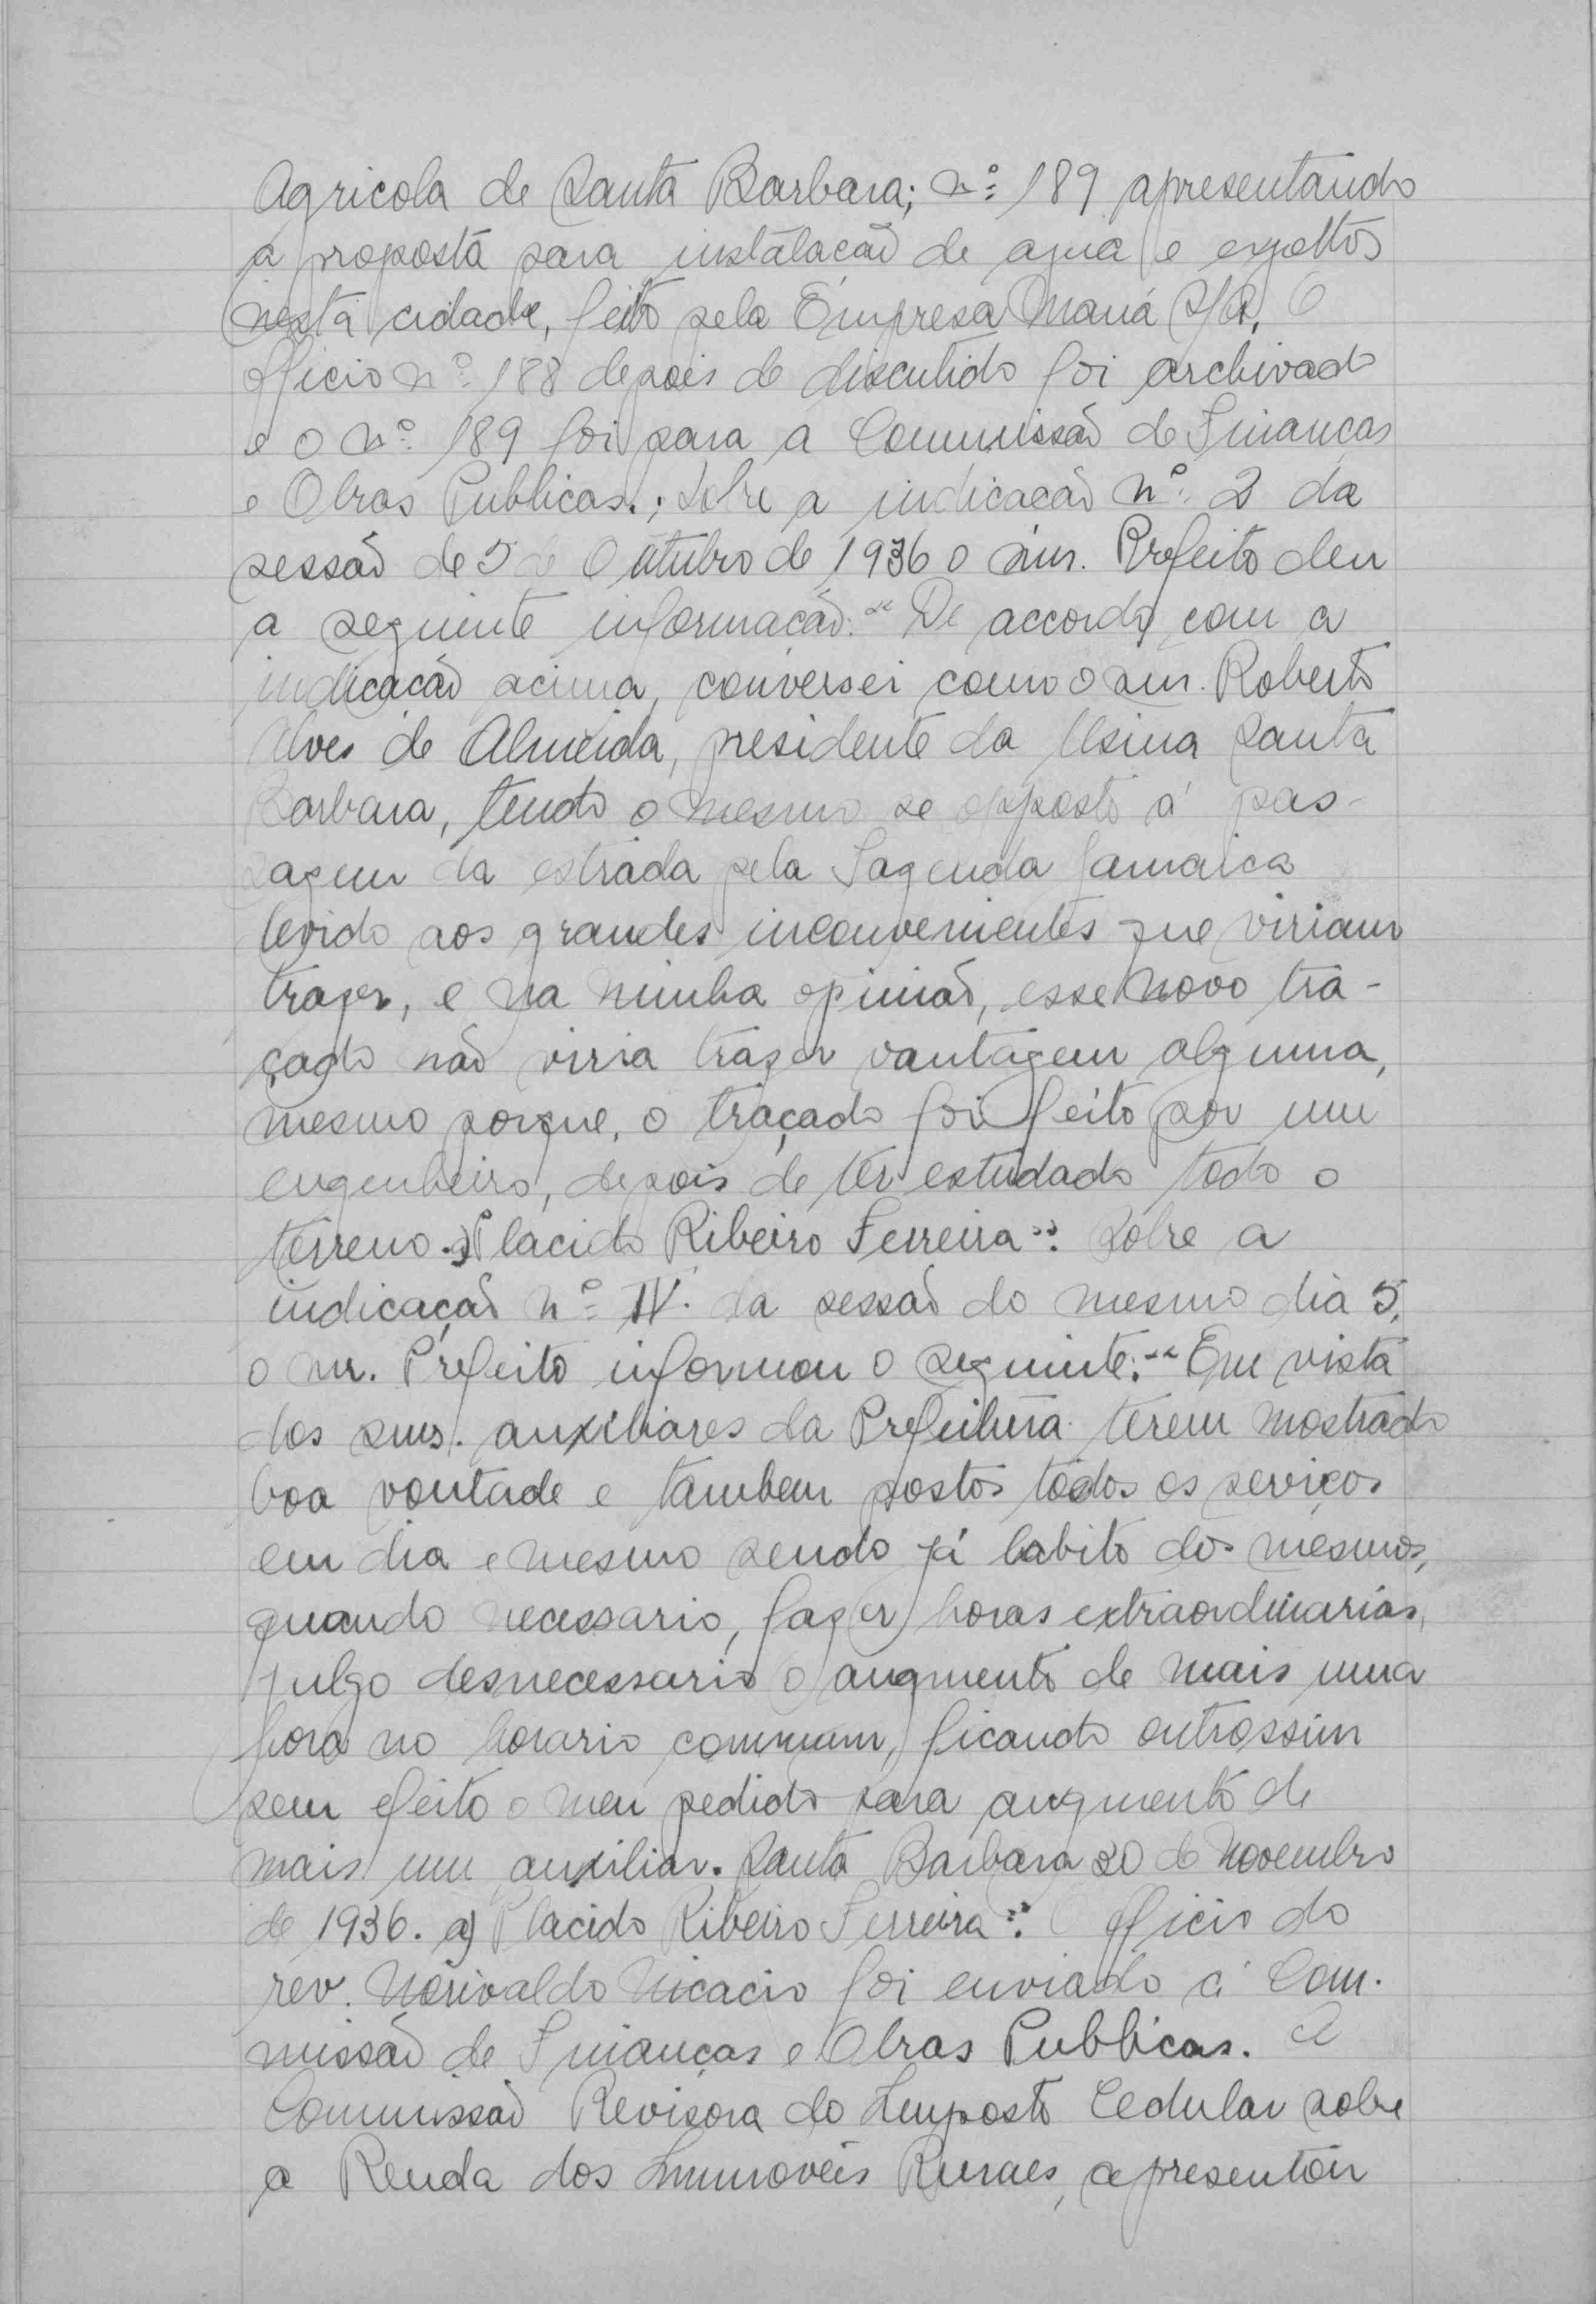 Agricola de Santa Barbara; nº 189 apresentando
a proposta para instalacão de agua e exgottos
nesta cidade, feito pela Empresa Mauá S/A. O
officio nº 188 depois de discutido foi archivado
e o nº 189 foi para a Commissão de Financas
e Obras Publicas.; Sobre a indicacão nº 2 da
sessão de 5 de Outubro de 1936 o snr. Prefeito deu
a seguinte informacão: "De accordo com a
indicacão acima, conversei com o snr. Roberto
Alves de Almeida, presidente da Usina Santa
Barbara, tendo o mesmo se opposto á pas-
sagem da estrada pela Fazenda Jamaica
devido aos grandes inconvenientes que viriam
trazer, e na minha opinião, esse novo tra-
çado não viria trazer vantagem alguma,
mesmo porque, o traçado foi feito por um
engenheiro, depois de ter estudado todo o
terreno. a) Placido Ribeiro Ferreira": Sobre a
indicação nº IV. da sessão do mesmo dia 5,
o snr. Prefeito informou o seguinte: "Em vista
dos snrs. auxiliares da Prefeitura terem mostrado
boa vontade e tambem postos todos os serviços
em dia e mesmo sendo já habito dos mesmos,
quando necessario, fazer horas extraordinarias,
julgo desnecessario o augmento de mais uma
hora no horario commum, ficando outrossim
sem efeito o meu pedido para augmento de
mais um auxiliar. Santa Barbara 20 de Novembro
de 1936. a) Placido Ribeiro Ferreira": O officio do
rev. Norivaldo Nicacio foi enviado á Com-
missão de Financas e Obras Publicas. A
Commissão Revisora do Imposto Cedular sobre
a Renda dos Immoveis Ruraes, apresentou